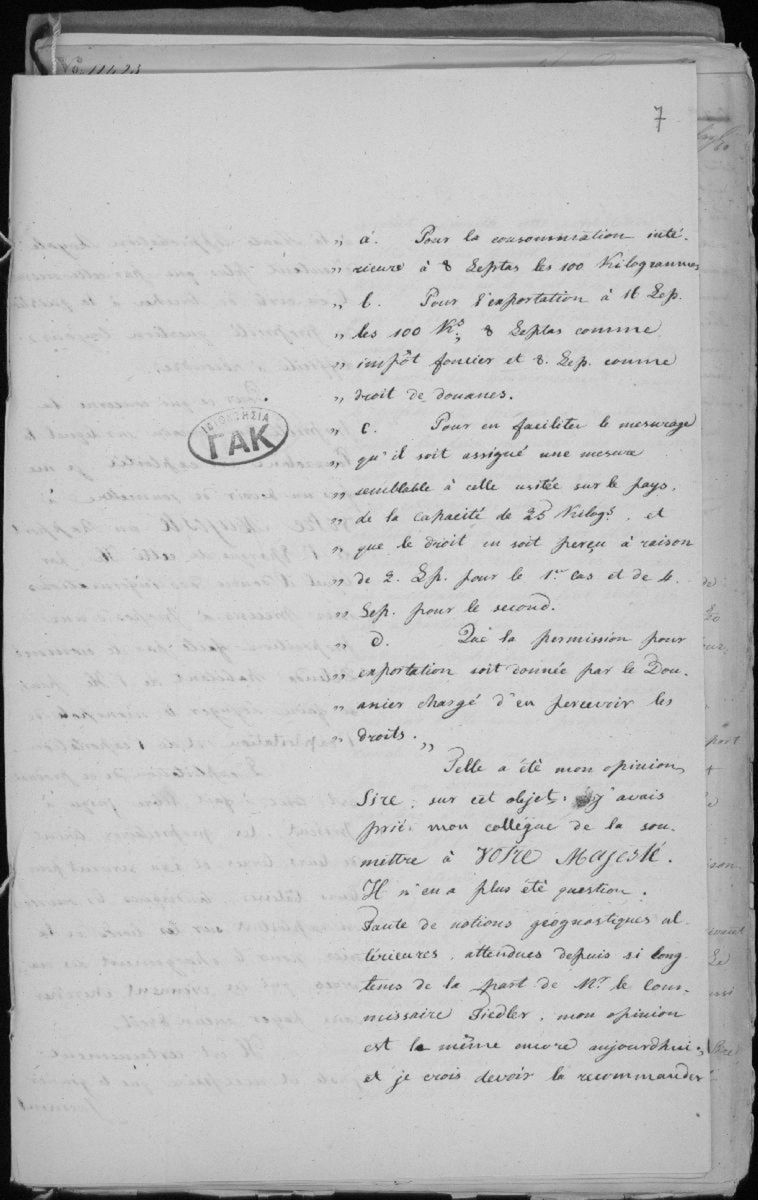 No. 11423
7
„ a. Pour la consommation inté-
„ rieure à 8 Leptas les 100 Kilogrammes
„ b. Pour l'exportation à 16 Lep.
„ les 100 Ks, 8 Leptas comme
„ impôt foncier et 8. Lep. comme
„ droit de douanes.
„ c. Pour en faciliter le mesurage
„ qu'il soit assigné une mesure
„ semblable à celle usitée sur le pays,
„ de la capacité de 25 Kilogs, et
„ que le droit en soit perçu à raison
„ de 2. Lep. pour le 1er cas et de 4.
„ Lep. pour le second.
„ D. Que la permission pour
„ exportation soit donnée par le Dou-
„ anier chargé d'en percevoir les
„ droits. „
Telle a été mon opinion
Sire, sur cet objet. j'avais
prié mon collégue de la sou-
mettre à Votre Majesté.
Il n'en a plus été question.
Faute de notions géognostiques ul-
térieures, attendues depuis si long
tems de la part de Mr le Com-
missaire Fiedler, mon opinion
est la même encore aujourdhui,
et je crois devoir la recommander
ΙΔΙΟΚΤΗΣΙΑ
ΓΑΚ